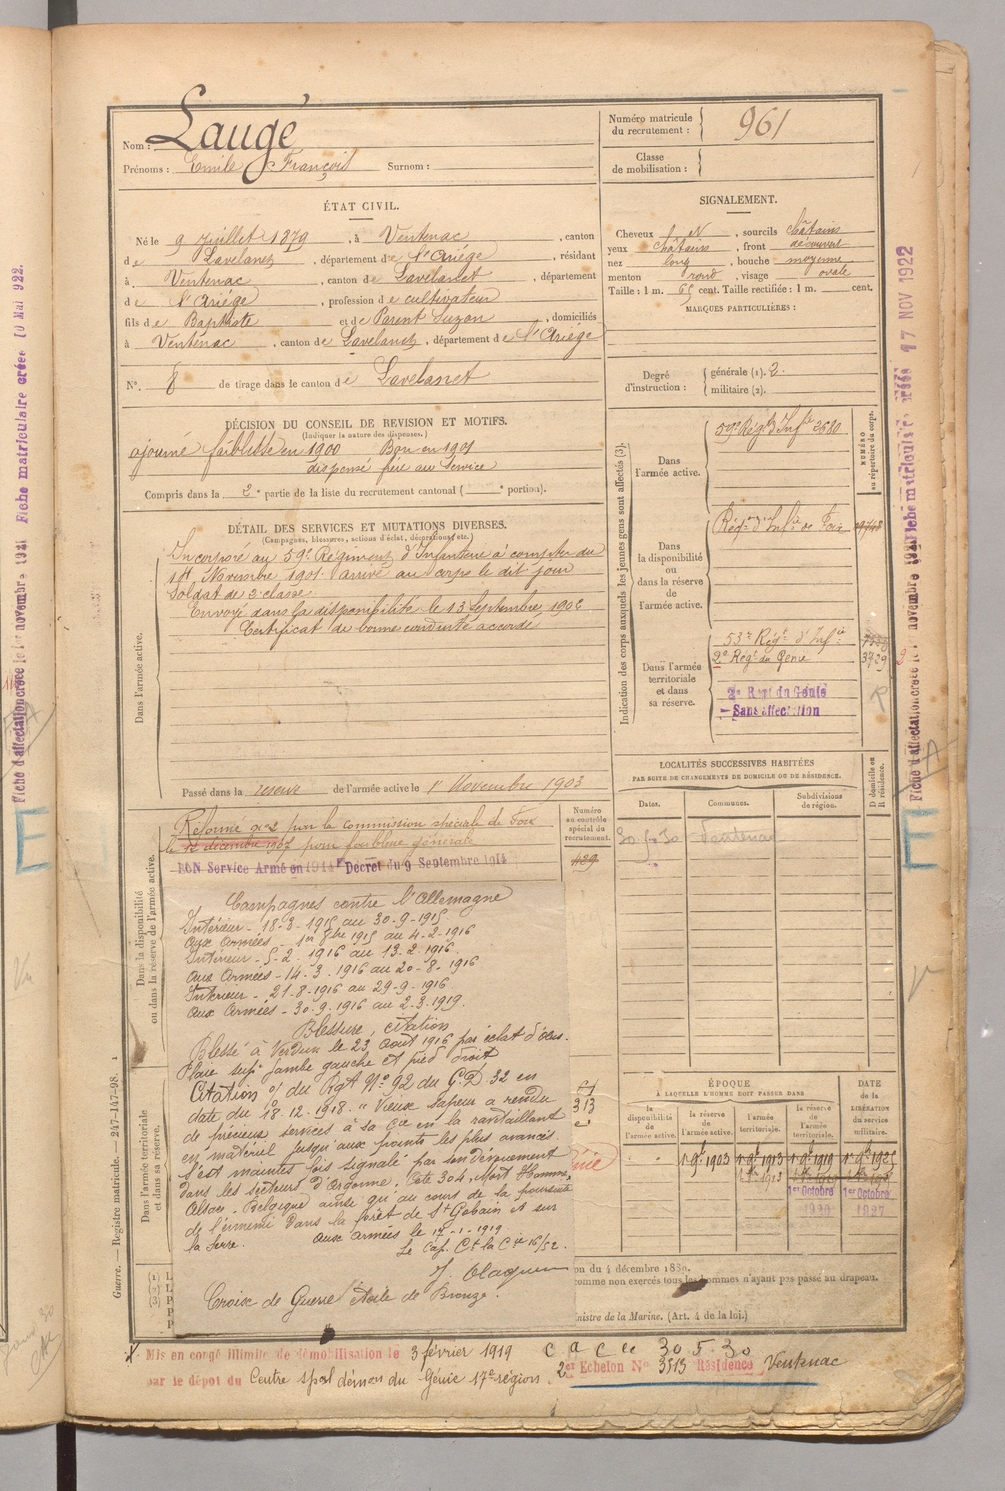 Nom : Laugé
Prénoms : Emile François Surnom :
Numéro matricule du recrutement : 961
Classe de mobilisation :
ÉTAT CIVIL.
Né le 9 Juillet 1879, à Ventenac, canton
de Lavelanet, département de l'Ariége, résidant
à Ventenac, canton de Lavelanet, département
de l'Ariége, profession de cultivateur
fils de Baptiste et de Parent Suzon, domiciliés
à Ventenac, canton de Lavelanet, département de l'Ariége
N°. 8 de tirage dans le canton de Lavelanet
SIGNALEMENT.
Cheveux N, sourcils Châtains
yeux châtains, front découvert
nez long, bouche moyenne
menton rond, visage ovale
Taille : 1 m. 65 cent. Taille rectifiée : 1 m. cent.
MARQUES PARTICULIÈRES :
Degré d'instruction : générale (1). 2.
militaire (2).
DÉCISION DU CONSEIL DE REVISION ET MOTIFS.
(Indiquer la nature des dispenses.)
ajourné faiblesse en 1900 Bon en 1901
dispensé frère au service
Compris dans la 2e partie de la liste du recrutement cantonal ( e portion).
DÉTAIL DES SERVICES ET MUTATIONS DIVERSES.
(Campagnes, blessures, actions d'éclat, décorations, etc.)
Dans l'armée active.
Incorporé au 59e Régiment d'Infanterie à compter du
14 Novembre 1901. arrivé au corps le dit jour
Soldat de 2e classe.
Envoyé dans la disponibilité le 13 Septembre 1902
Certificat de bonne conduite accordé
Passé dans la réserve de l'armée active le 1er Novembre 1903
Indication des corps auxquels les jeunes gens sont affectés (3).
NUMÉRO au répertoire du corps.
Dans l'armée active.
59e Régt d'Infie 2680
Dans la disponibilité ou dans la réserve de l'armée active.
Régt d'Infie de Foix
Dans l'armée territoriale et dans sa réserve.
53e Régt d'Infie
2e Régt du Génie 3729
2e Regt du Génie
Sans affectation
LOCALITÉS SUCCESSIVES HABITÉES
PAR SUITE DE CHANGEMENTS DE DOMICILE OU DE RÉSIDENCE.
D domicile ou R résidence.
Dates. Communes. Subdivisions de région.
Ventenac
Dans la disponibilité ou dans la réserve de l'armée active.
Réformé n° 2 par la commission spéciale de Foix
le 12 décembre 1907 pour faiblesse générale
BON Service Armé en 1914 Decret du 9 Septembre 1914
Numéro au contrôle spécial du recrutement.
Campagnes contre l'Allemagne
Intérieur - 18-3-1915 au 30-9-1915
Aux Armées - 1er 8bre 1915 au 4-2-1916
Intérieur - 5-2-1916 au 13-2-1916
aux Armées - 14-3-1916 au 20-8-1916
Intérieur - 21-8-1916 au 29-9-1916
Aux Armées - 30-9-1916 au 2-3-1919.
Blessure, citation
Blessé à Verdun le 23 Août 1916 par éclat d'obus.
Plaie suple jambe gauche et pied droit
Citation o/ du Rgt N° 92 du G.D. 32 en
date du 18.12.1918. "Vieux sapeur a rendu
de précieux services à sa Cie en la ravitaillant
en matériel jusqu'aux points les plus avancés.
S'est maintes fois signalé par son dévouement
dans les secteurs d'Argonne, Cote 304, Mort Homme,
Alsace, Belgique ainsi qu'au cours de la poursuite
de l'ennemi dans la forêt de St Gobain et sur
la Serre. Aux armées le 17-1-1919
Le Cap. Ct la Cie 16/52.
Croix de Guerre étoile de Bronze.
Dans l'armée territoriale et dans sa réserve.
ÉPOQUE
A LAQUELLE L'HOMME DOIT PASSER DANS
DATE de la LIBÉRATION du service militaire.
la disponibilité de l'armée active. la réserve de l'armée active. l'armée territoriale. la réserve de l'armée territoriale.
1er 9bre 1903 1er 9bre 1913 1er 9bre 1919 1er 9bre 1925
1er Octobre 1er Octobre
1920 1927
on du 4 décembre 1889.
comme non exercés tous les hommes n'ayant pas passé au drapeau.
nistre de la Marine. (Art. 4 de la loi.)
Guerre. — Registre matricule. — 247-147-98. 1
Mis en congé illimité de démobilisation le 3 février 1919
par le dépot du Centre spal démon du Génie 17e région.
C a C le 30.5.30
2er Echelon N° 3513 Résidence Ventenac
Fiche d'affectation créée le 1er novembre 1921 Fiche matriculaire créée 10 Mai 1922.
Fiche d'affectation créée le 1er novembre 1921 Fiche matriculaire créée 17 NOV 1922